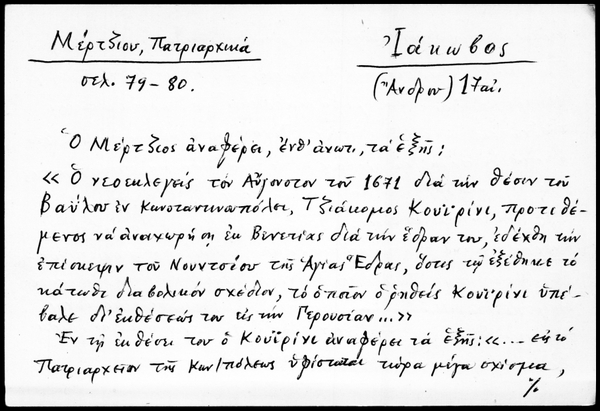 Μέρτζιου, Πατριαρχικά
σελ. 79-80.
Ἰάκωβος
(Ἄνδρου) 17 αἰ.
Ὁ Μέρτζιος ἀναφέρει, ἔνθ' ἀνωτ., τά ἑξῆς:
«Ὁ νεοεκλεγείς τόν Αὔγουστον τοῦ 1671 διά τήν θέσιν τοῦ
Βαΰλου ἐν Κωνσταντινουπόλει, Τζιάκομος Κουϊρίνι, προτιθέ-
μενος νά ἀναχωρήσῃ ἐκ Βενετίας διά τήν ἕδραν του, ἐδέχθη τήν
ἐπίσκεψιν τοῦ Νουντσίου τῆς Ἁγίας Ἕδρας, ὅστις τῷ ἐξέθηκε τό
κάτωθι διαβολικόν σχέδιον, τό ὁποῖον ὁ ρηθείς Κουϊρίνι ὑπέ-
βαλε δι' ἐκθέσεώς του εἰς τήν Γερουσίαν...»
Ἐν τῇ ἐκθέσει του ὁ Κουϊρίνι ἀναφέρει τά ἑξῆς: «... εἰς τό
Πατριαρχεῖον τῆς Κων/πόλεως ὑφίσταται τώρα μέγα σχίσμα,
%